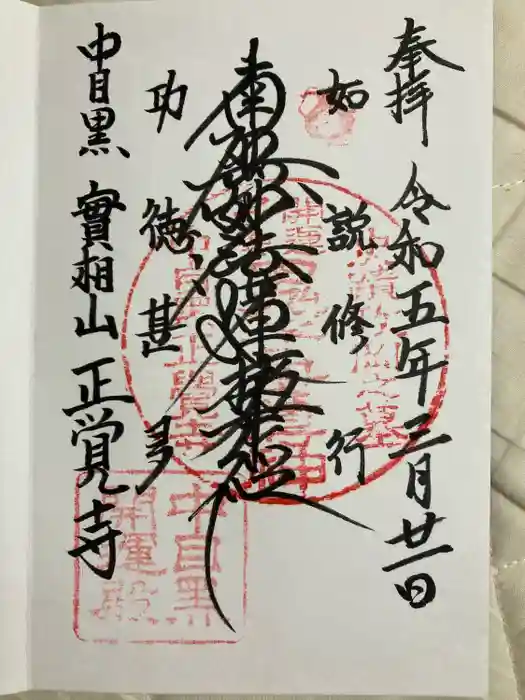 奉拝　令和五年三月廿一日
如説修行
南無妙法蓮華経
功徳甚多
中目黒　實相山　正覚寺
中目黒
開運殿